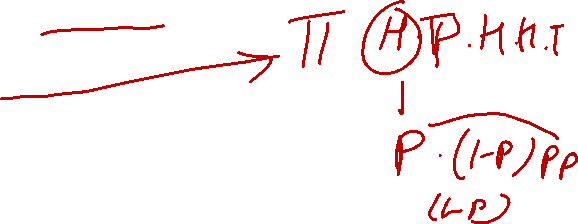 TT H P.H.H.T
P.(1-P)PP
(1-P)